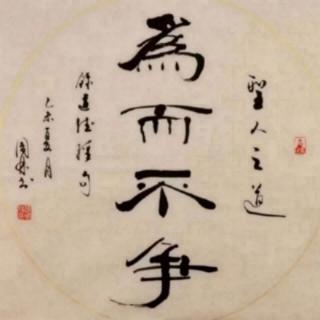 聖人之道
為而不争
錄道德經句
乙未夏月